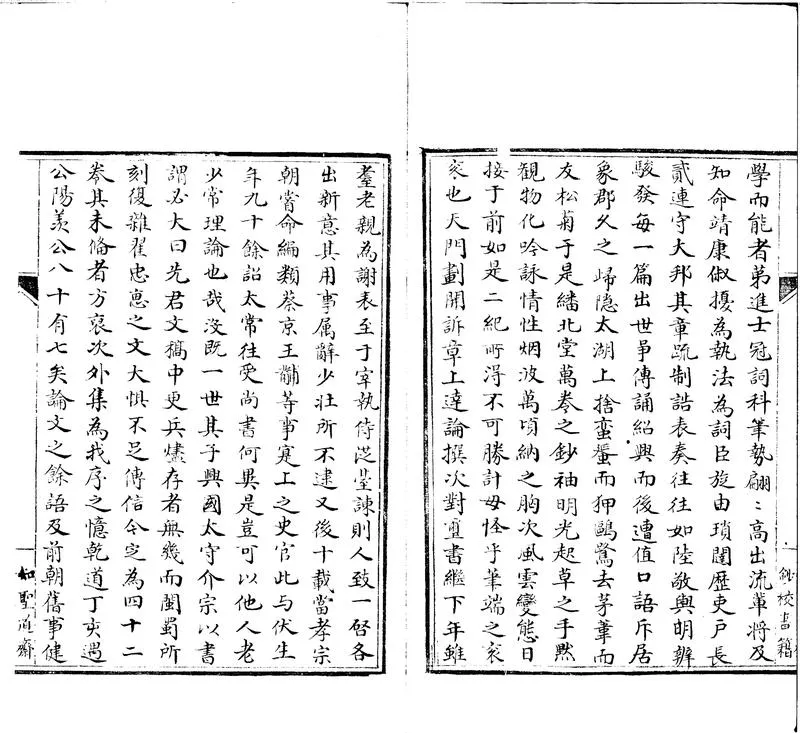 學而能者第進士冠詞科筆勢翩〻高出流輩將及
知命靖康俶擾為執法為詞臣旋由瑣闥歷吏戶長
貳連守大邦其章疏制誥表奏往往如陸敬輿明辨
駿發每一篇出世爭傳誦紹興而後遭值口語斥居
象郡久之歸隐太湖上捨蛮蜑而狎鷗鷺去茅葦而
友松菊于是繙北堂萬卷之鈔袖明光起草之手默
観物化吟詠情性烟波萬頃納之胸次風雲變態日
接于前如是二紀所得不可勝計毋怪乎筆端之衮
衮也天門劃開訴章上達論撰次對璽書繼下年雖
鈔校書籍
耋老親為謝表至于宰執侍從䑓諫則人致一啓各
出新意其用事属辭少壮所不逮又後十載當孝宗
朝嘗命編類蔡京王黼等事寔上之史官此与伏生
年九十餘詔太常往受尚書何異是豈可以他人老
少常理論也哉没既一世其子興國太守介宗以書
謂必大曰先君文稿中更兵燼存者無幾而閩蜀所
刻復雜翟忠惠之文大惧不足傳信今定為四十二
卷其未俻者方裒次外集為我序之憶乾道丁亥遇
公陽羨公八十有七矣論文之餘語及前朝舊事健
知聖道齋